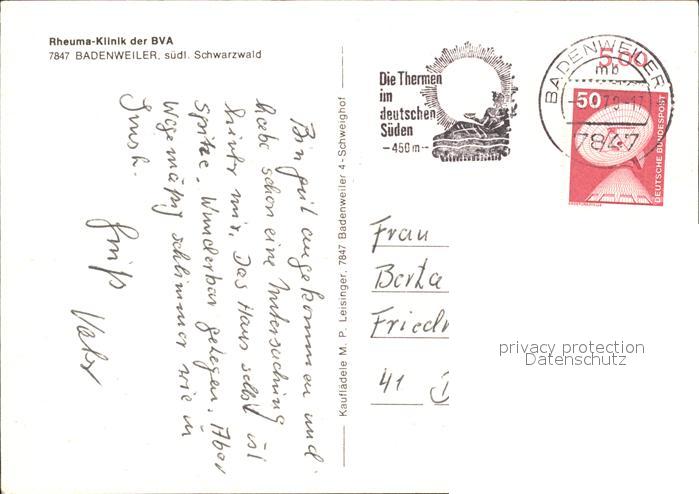 Rheuma-Klinik der BVA
7847 BADENWEILER, südl. Schwarzwald
Bin gut angekommen und
habe schon eine Untersuchung
hinter mir. Das Haus selbst ist
Spitze. Wunderbar gelegen. Aber
wegemäßig schlimmer wie in
Gruß
Vater
Kauflädele M. P. Leisinger, 7847 Badenweiler 4 - Schweighof
Die Thermen
im
deutschen
Süden
- 450 m -
BADENWEILER
mb
7847
5.00
50
DEUTSCHE BUNDESPOST
Frau
Berta
Friedr
41
privacy protection
Datenschutz